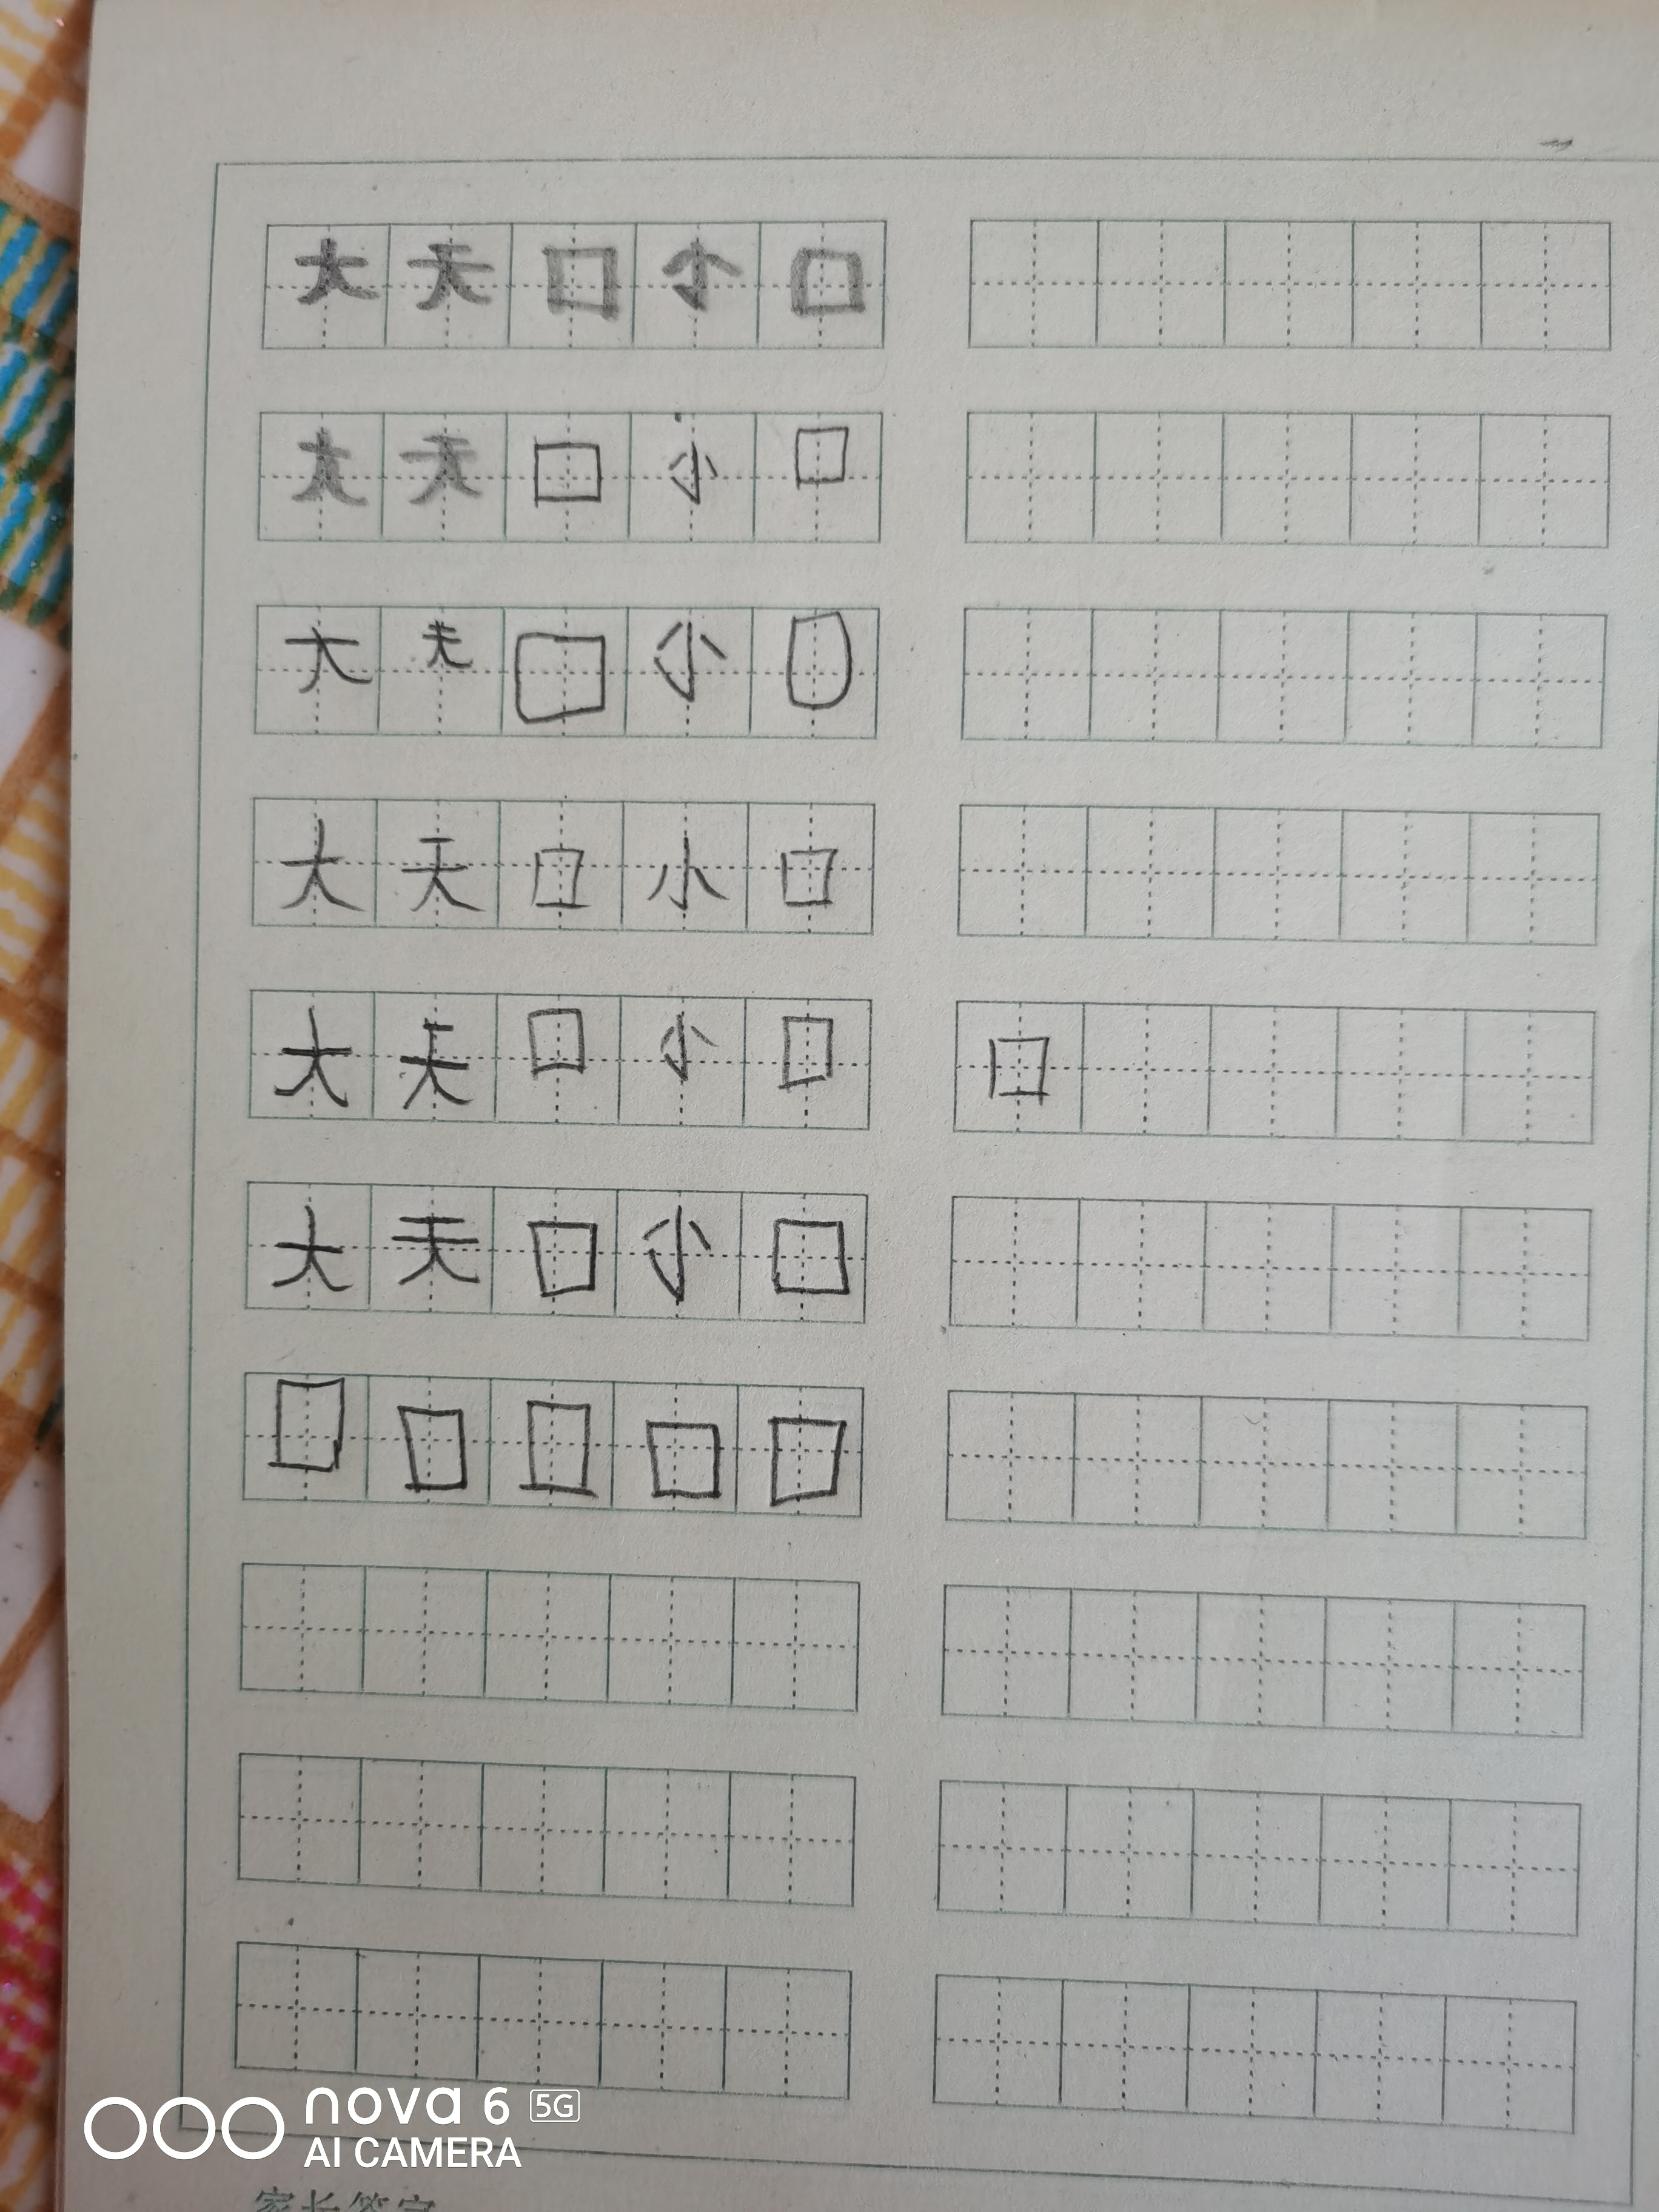 大天口小口
大天口小口
大天口小口
大天口小口
大天口小口 口
大天口小口
口口口口口
nova 6 5G
AI CAMERA
家长签字